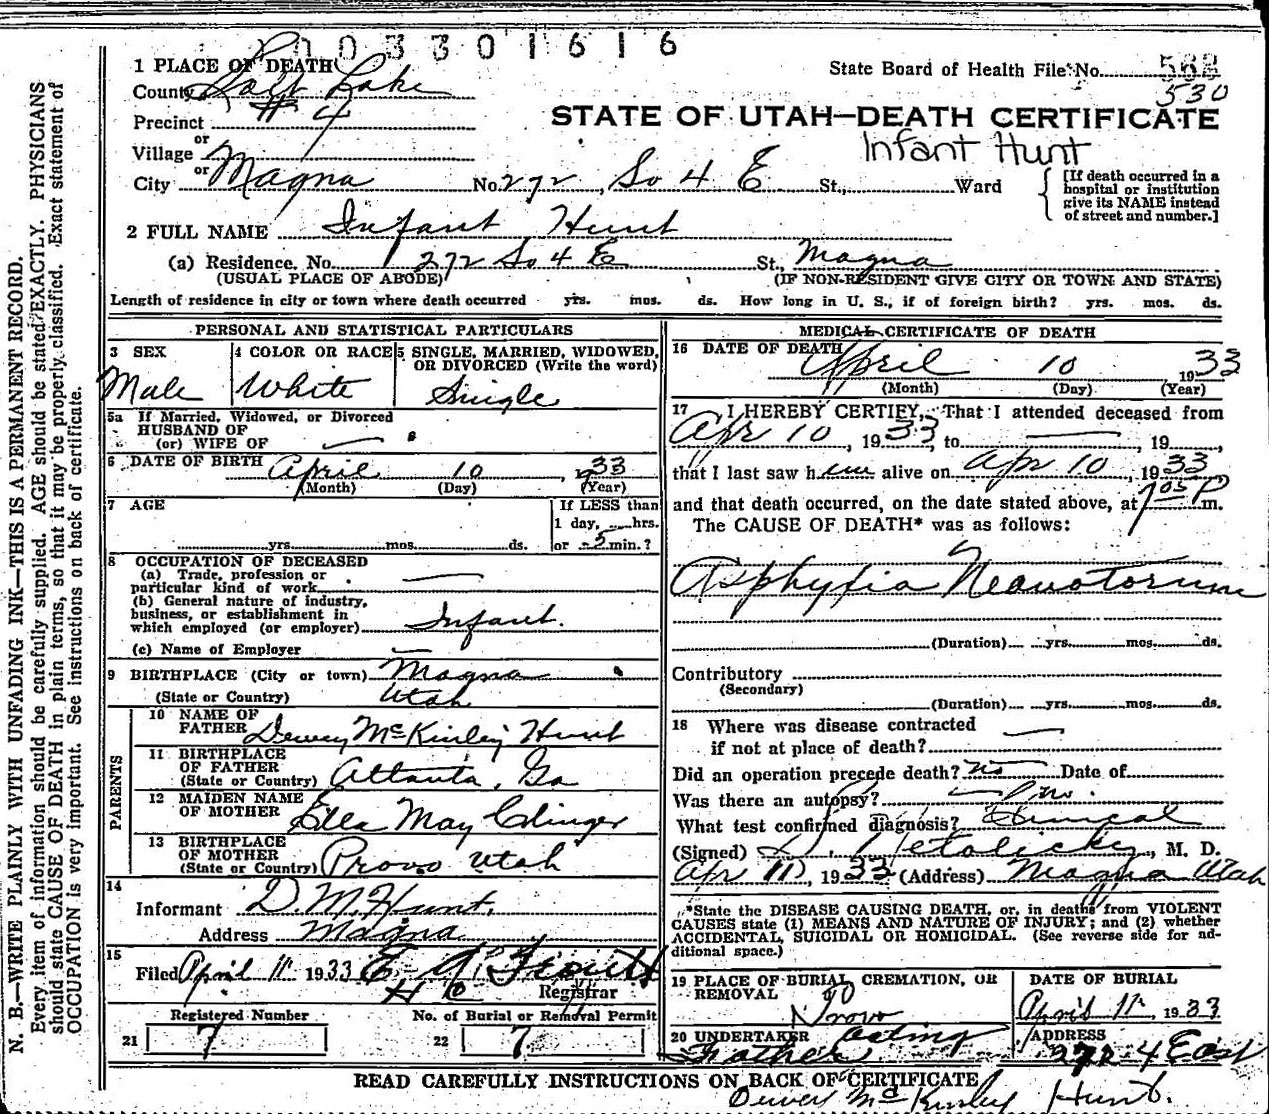 1003301616
1 PLACE OF DEATH
State Board of Health File No. 562
530
County Salt Lake
Precinct #4
STATE OF UTAH—DEATH CERTIFICATE
Infant Hunt
or
Village
or
City Magna No. 272, So 4 E St., Ward
[If death occurred in a
hospital or institution
give its NAME instead
of street and number.]
2 FULL NAME Infant Hunt
(a) Residence. No. 272 So 4 E St., Magna
(USUAL PLACE OF ABODE) (IF NON-RESIDENT GIVE CITY OR TOWN AND STATE)
Length of residence in city or town where death occurred yrs. mos. ds. How long in U. S., if of foreign birth? yrs. mos. ds.
PERSONAL AND STATISTICAL PARTICULARS
3 SEX
Male
4 COLOR OR RACE
White
5 SINGLE, MARRIED, WIDOWED,
OR DIVORCED (Write the word)
Single
5a If Married, Widowed, or Divorced
HUSBAND OF
(or) WIFE OF —
6 DATE OF BIRTH April 10, 1933
(Month) (Day) (Year)
7 AGE
yrs. mos. ds.
If LESS than
1 day, hrs.
or 5 min.?
8 OCCUPATION OF DECEASED
(a) Trade, profession or
particular kind of work —
(b) General nature of industry,
business, or establishment in
which employed (or employer) Infant.
(c) Name of Employer —
9 BIRTHPLACE (City or town) Magna
(State or Country) Utah
PARENTS
10 NAME OF
FATHER Dewey McKinley Hunt
11 BIRTHPLACE
OF FATHER
(State or Country) Atlanta, Ga
12 MAIDEN NAME
OF MOTHER Ella May Edinger
13 BIRTHPLACE
OF MOTHER
(State or Country) Provo Utah
14
Informant D. M. Hunt.
Address Magna
15
Filed April 11 1933
Registrar
Registered Number
21 7
No. of Burial or Removal Permit
22 7
MEDICAL CERTIFICATE OF DEATH
16 DATE OF DEATH
April 10 1933
(Month) (Day) (Year)
17 I HEREBY CERTIFY, That I attended deceased from
Apr 10, 1933 to —, 19
that I last saw him alive on Apr 10, 1933
and that death occurred, on the date stated above, at 7 05 P m.
The CAUSE OF DEATH* was as follows:
Asphyxia Neanotorum
(Duration) yrs. mos. ds.
Contributory
(Secondary)
(Duration) yrs. mos. ds.
18 Where was disease contracted
if not at place of death? —
Did an operation precede death? no Date of
Was there an autopsy? — no.
What test confirmed diagnosis? Clinical
(Signed) D. Petolicky, M. D.
Apr 11, 1933 (Address) Magna Utah
*State the DISEASE CAUSING DEATH, or, in deaths from VIOLENT
CAUSES state (1) MEANS AND NATURE OF INJURY; and (2) whether
ACCIDENTAL, SUICIDAL OR HOMICIDAL. (See reverse side for ad-
ditional space.)
19 PLACE OF BURIAL, CREMATION, OR
REMOVAL
Provo
DATE OF BURIAL
April 11, 1933
20 UNDERTAKER Acting
Father
ADDRESS
272 4 East
READ CAREFULLY INSTRUCTIONS ON BACK OF CERTIFICATE
Dewey McKinley Hunt.
N. B.—WRITE PLAINLY WITH UNFADING INK—THIS IS A PERMANENT RECORD.
Every item of information should be carefully supplied. AGE should be stated EXACTLY. PHYSICIANS
should state CAUSE OF DEATH in plain terms, so that it may be properly classified. Exact statement of
OCCUPATION is very important. See instructions on back of certificate.